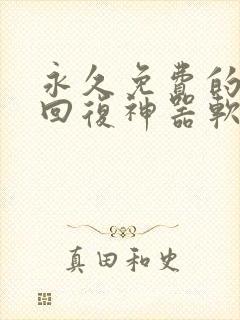 永久免費的
回復神器軟
真田和史